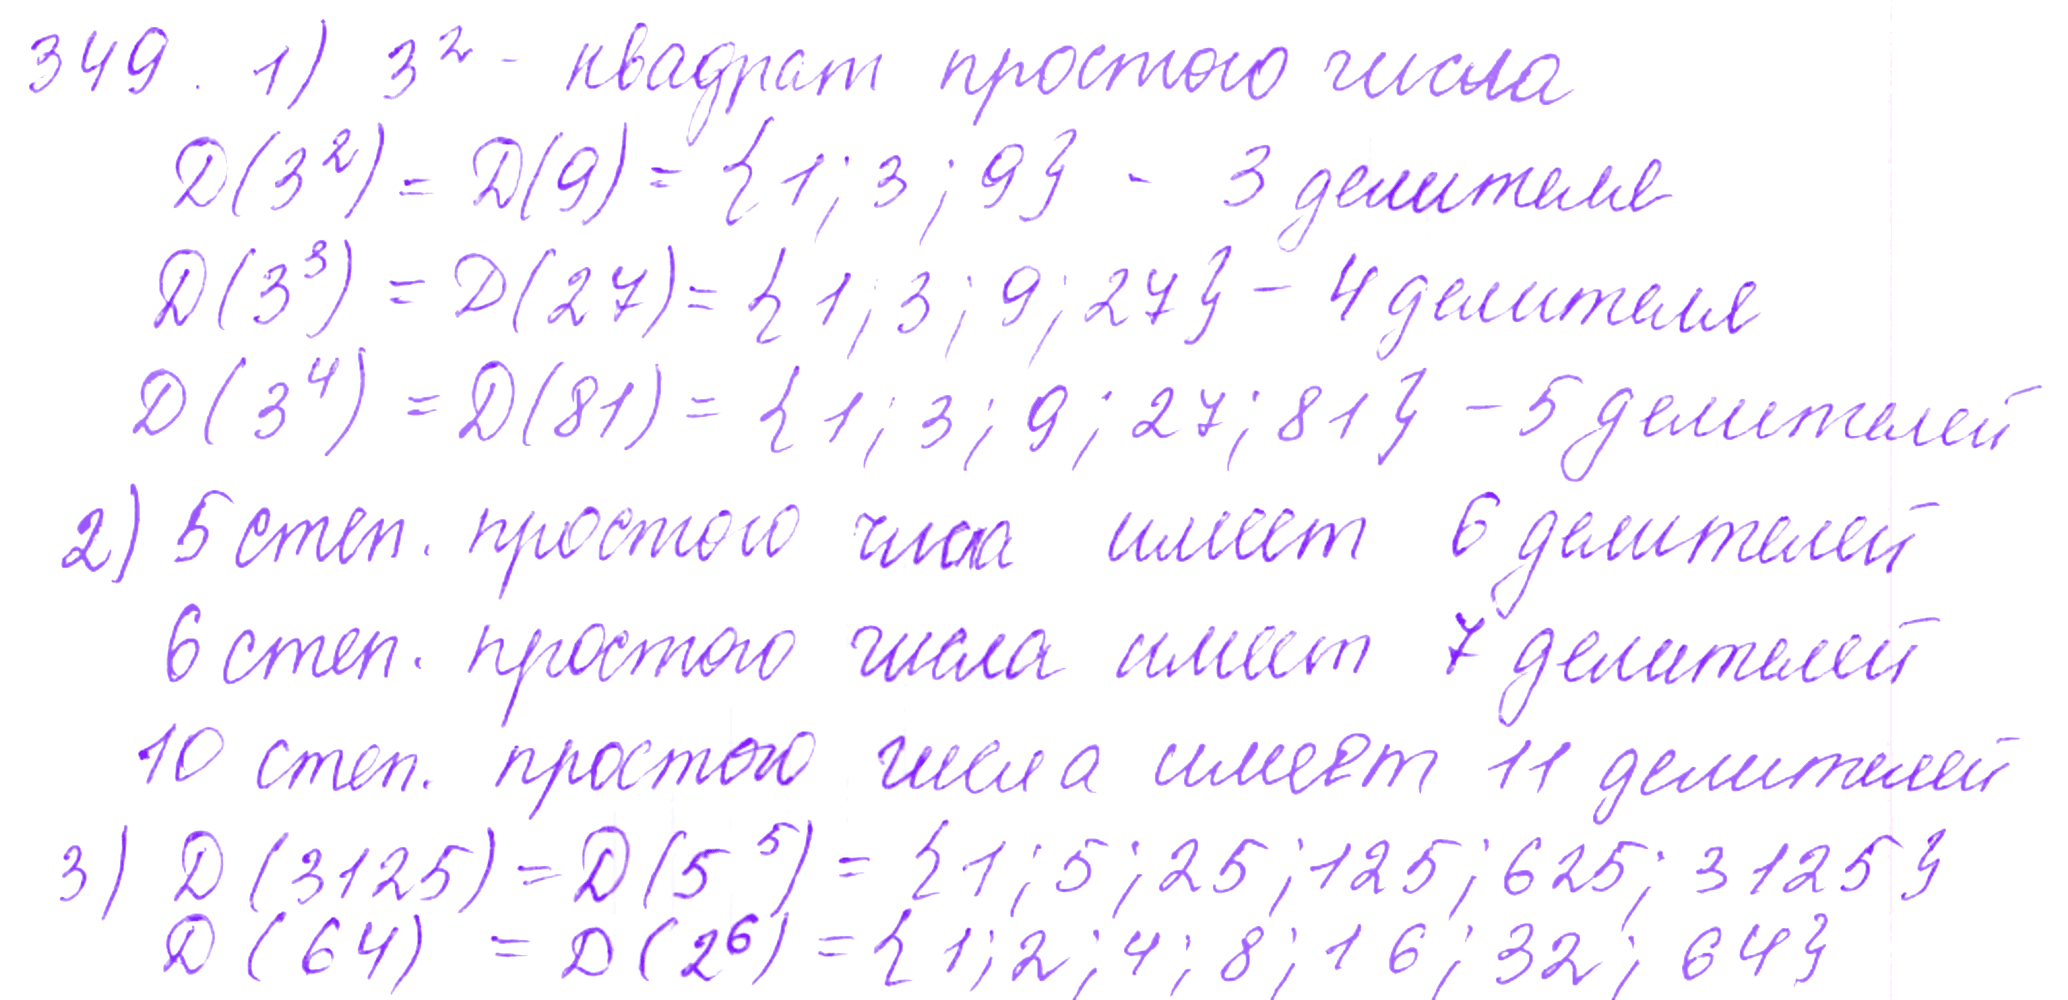 349. 1) 3² - квадрат простого числа
D(3²) = D(9) = {1; 3; 9} - 3 делителя
D(3³) = D(27) = {1; 3; 9; 27} - 4 делителя
D(3⁴) = D(81) = {1; 3; 9; 27; 81} - 5 делителей
2) 5 степ. простого числа имеет 6 делителей
6 степ. простого числа имеет 7 делителей
10 степ. простого числа имеет 11 делителей
3) D(3125) = D(5⁵) = {1; 5; 25; 125; 625; 3125}
D(64) = D(2⁶) = {1; 2; 4; 8; 16; 32; 64}